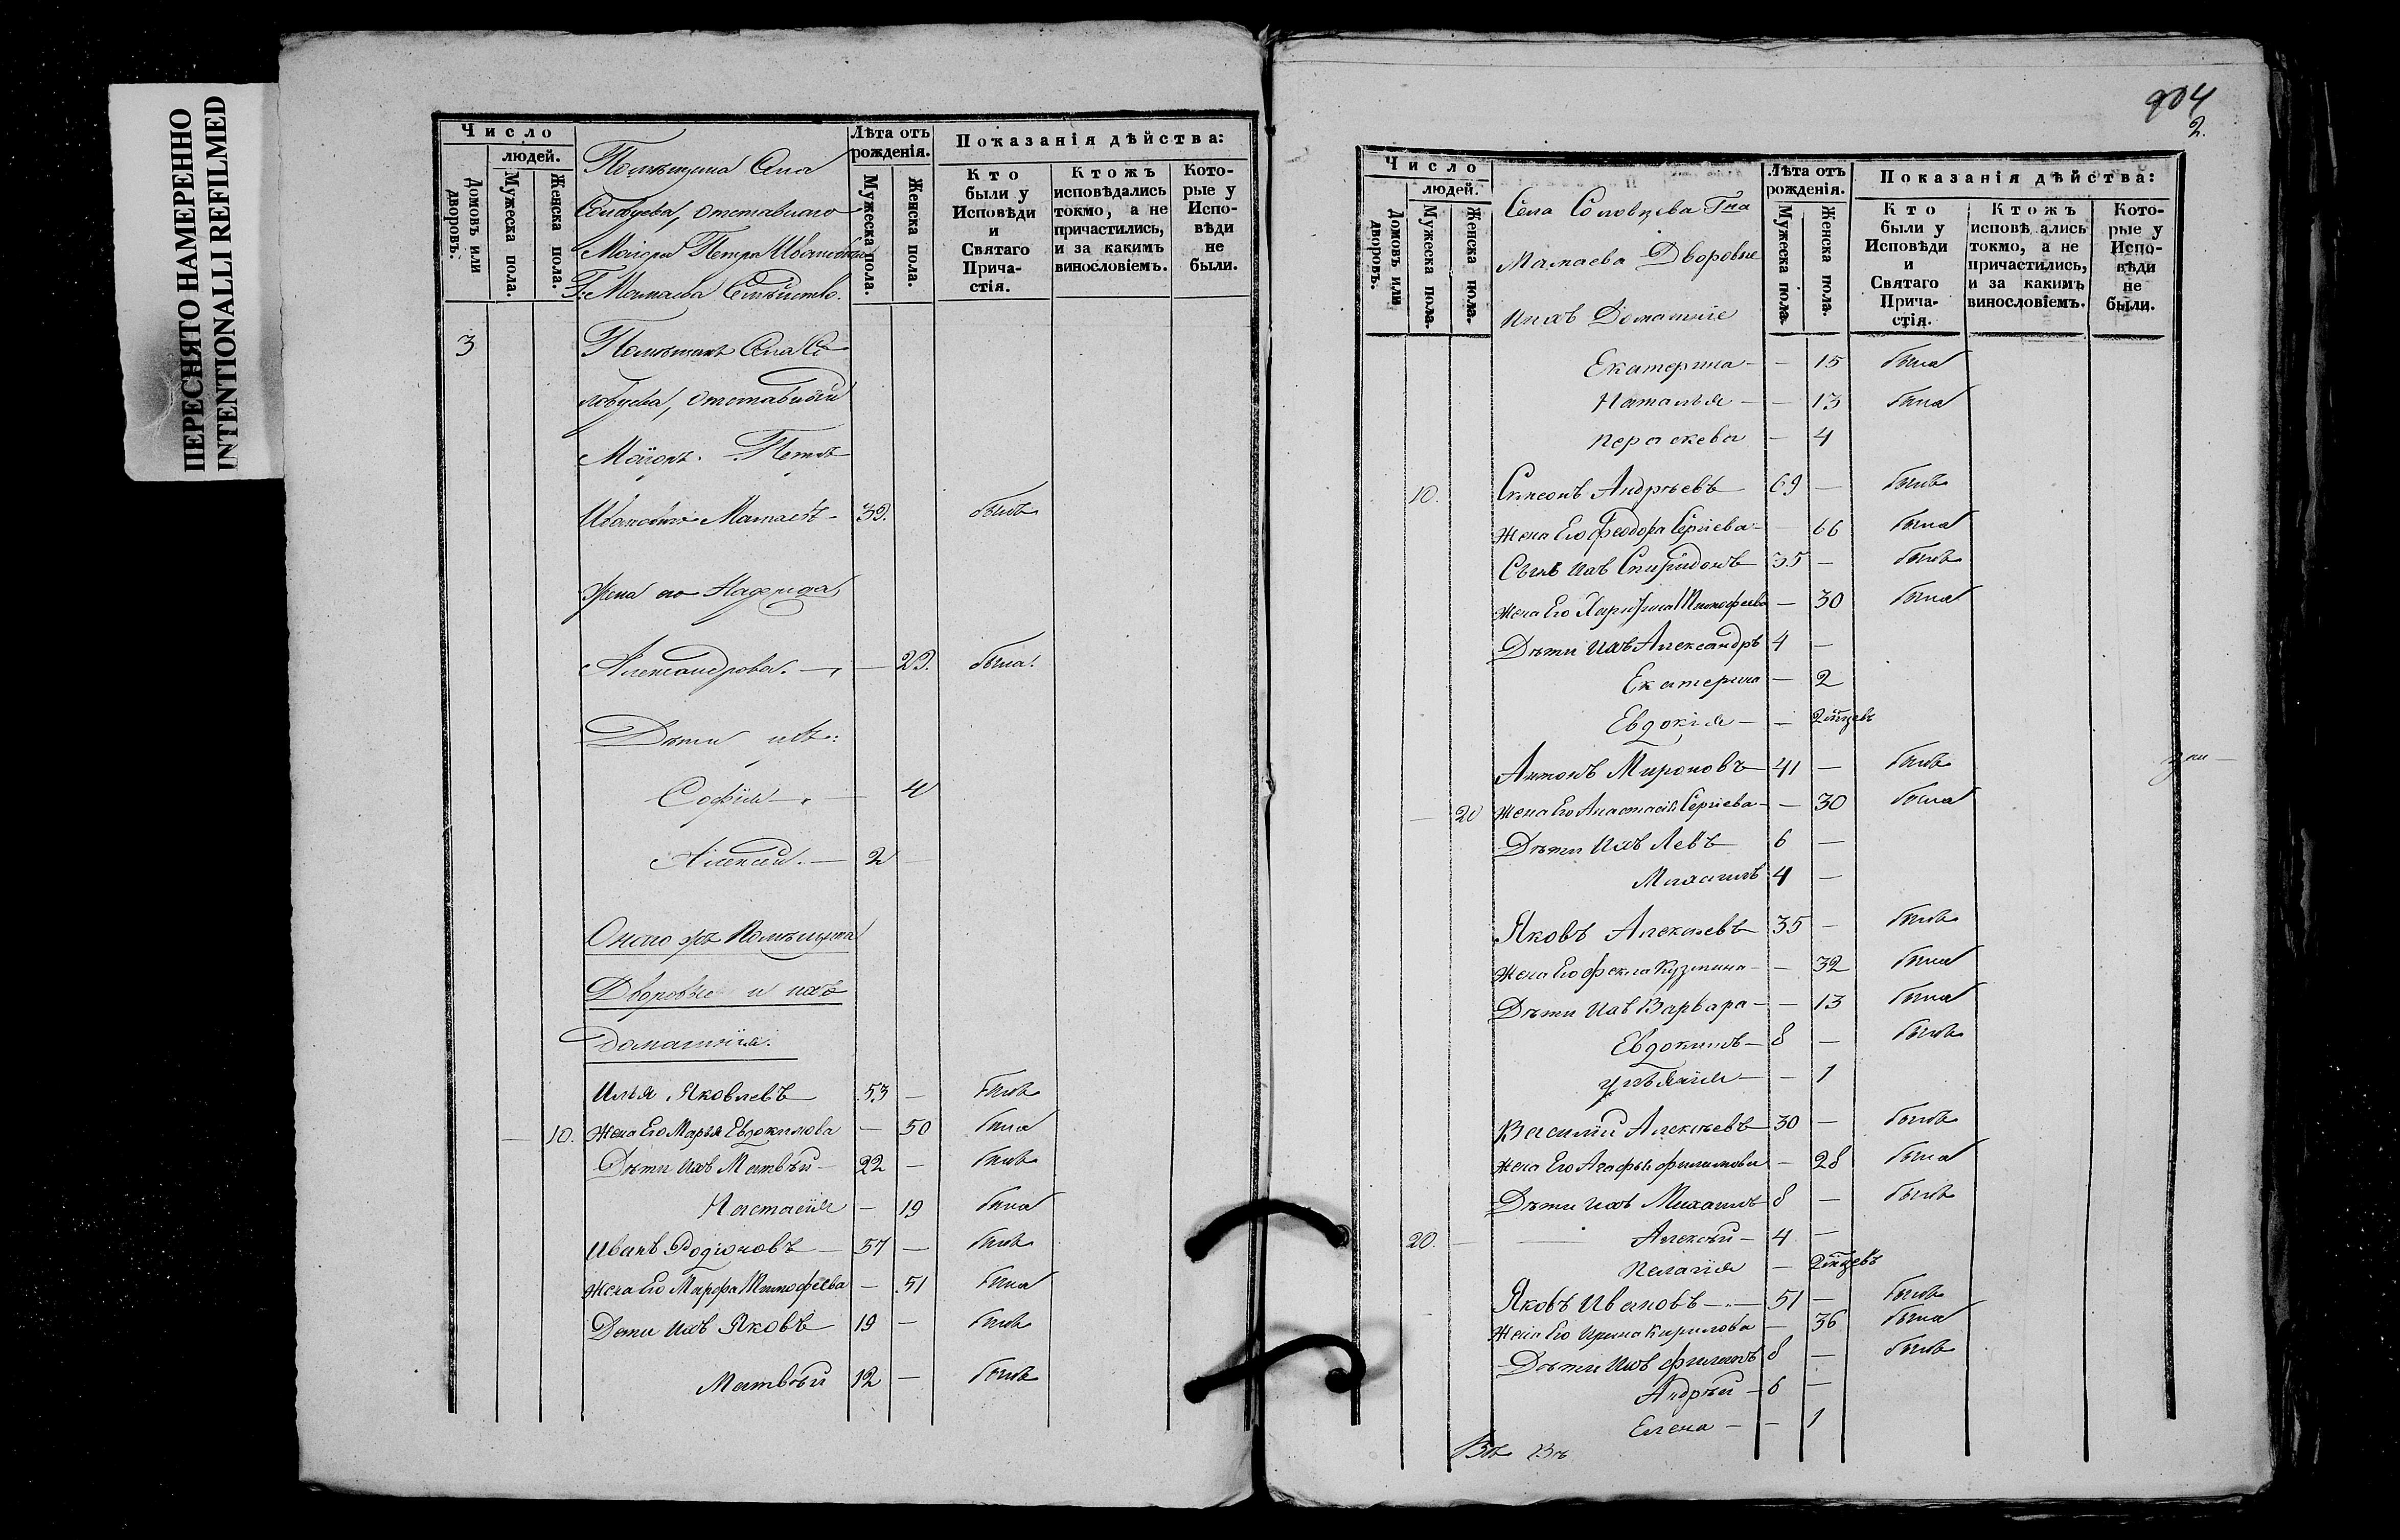 ПЕРЕСНЯТО НАМЕРЕННО
INTENTIONALLI REFILMED
Число
людей.
Домовъ или дворовъ.
Мужеска пола.
Женска пола.
Помѣщика Села
Соловцева, отставнаго
Маіора Петра Ивановича
Г. Матаева Семѣйство.
Лѣта отъ рожденія.
Мужеска пола.
Женска пола.
Показанія дѣйства:
Кто были у Исповѣди и Святаго Прича- стія.
Ктожъ исповѣдались токмо, а не причастились, и за какимъ винословіемъ.
Кото- рые у Испо- вѣди не были.
3 Помѣщикъ Села Со
ловцева, отставный
Маіоръ Петръ
Ивановичь Матаевъ - 39. былъ
Жена его Надежда
Александрова. — — 29. была.
Дѣти ихъ:
Софія — — 4
Алексѣй. — 2 —
Онаго жъ Помѣщика
Дворовые и ихъ
домашнія.
Илья Яковлевъ 53 — былъ
— 10. Жена Его Марья Евдокимова — 50 была
Дѣти Ихъ Матвѣй - 22 — былъ
Настасія — 19 была
Иванъ Родіоновъ — 57 — былъ
Жена Его Марфа Тимофеева — 51 была
Дети Ихъ Яковъ 19 — былъ
Матвѣй 12 — былъ
904
2.
Число
людей.
Домовъ или дворовъ.
Мужеска пола.
Женска пола.
Села Соловцева Гна
Матаева Дворовые
Ихъ Домашніе
Лѣта отъ рожденія.
Мужеска пола.
Женска пола.
Показанія дѣйства:
Кто были у Исповѣди и Святаго Прича- стія.
Ктожъ исповѣ ались токмо, а не причастились, и за какимъ винословіемъ.
Кото- рые у Испо- вѣди не были.
Екатерина - — 15 была
Наталья — — 13 была
Пераскева — 4
10. Симеонъ Андрѣевъ 69 — былъ
Жена Его Феодора Сергіева - — 66 была
Сынъ Ихъ Спиридонъ 35 — былъ
Жена Его Харитина Тимофеева — 30 была
Дѣти Ихъ Александръ 4 —
Екатерина — 2
Евдокія — —
Антонъ Мироновъ 41 — былъ
— 20 Жена Его Анастасія Сергіева - — 30 была
Дѣти Ихъ Левъ 6 —
Михаилъ 4 —
Яковъ Алексѣевъ 35 — былъ
Жена Его Фекла Кузмина - — 32 была
Дѣти Ихъ Варвара - — 13 была
Евдокимъ — 8 — былъ
Ульянія — — 1
Василій Алексѣевъ 30 — былъ
Жена Его Агафья Филимонова — 28 была
Дѣти Ихъ Михаилъ 8 — былъ
20. — Алексѣй — 4 —
Пелагія —
Яковъ Ивановъ — 51 — былъ
Жена Его Ирина Кирилова — 36 была
Дѣти Ихъ Филипъ 8 — былъ
Андрѣй — 6 —
Елена — — 1